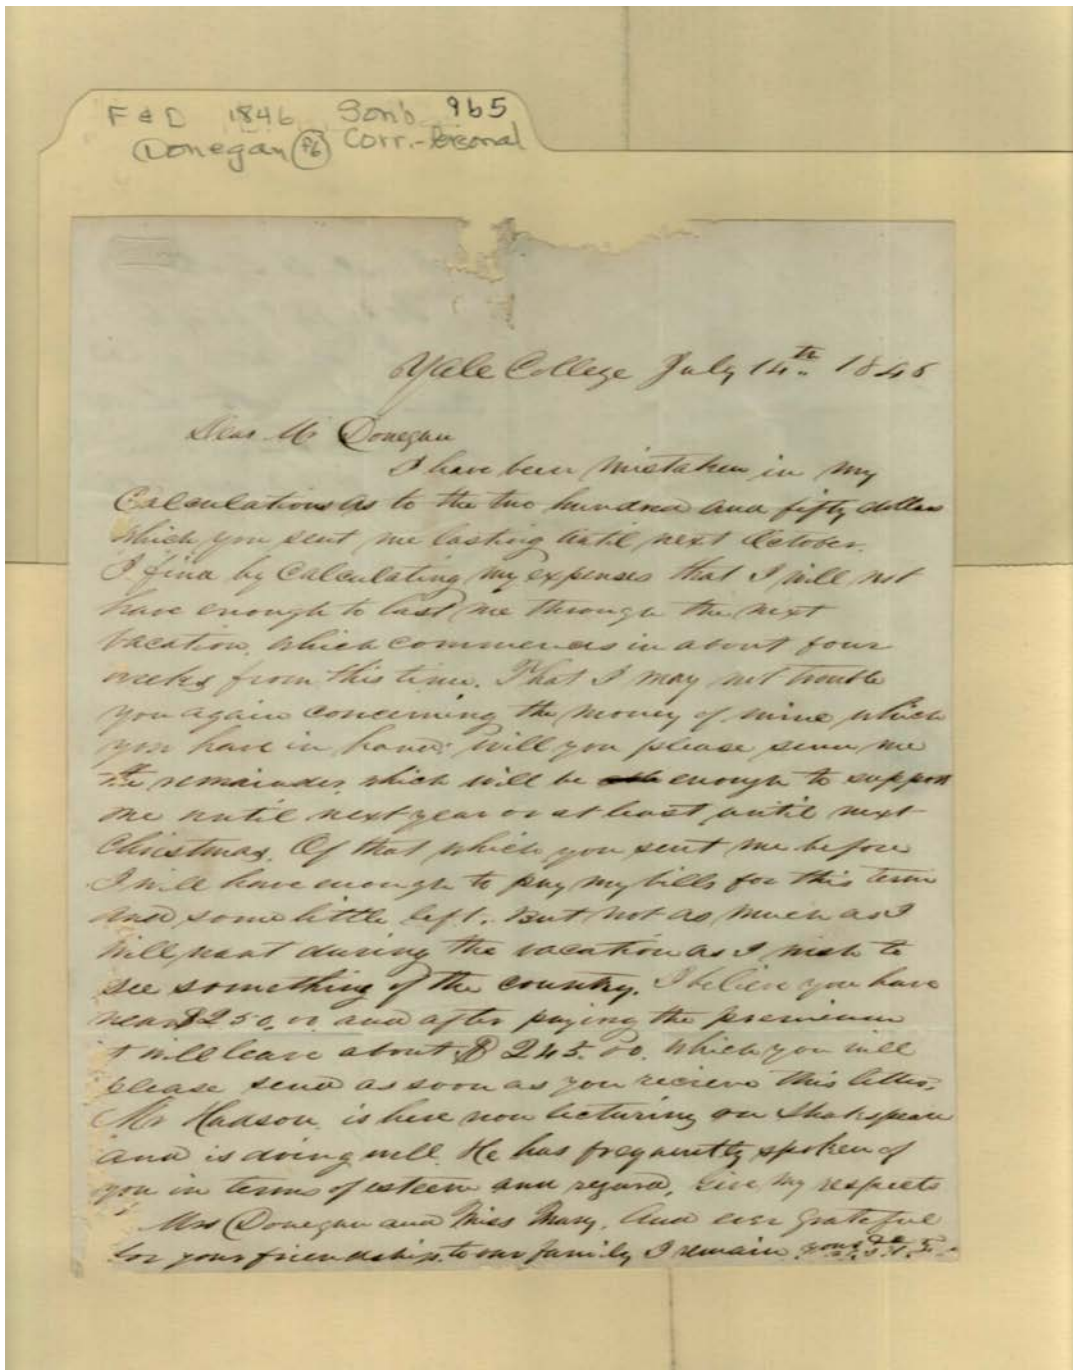 F & D 1846 Son's 965
Donegan F6 Corr.-Personal
Yale College July 14th. 1846
Dear Mr Donegan
I have been mistaken in my
Calculations as to the two hundred and fifty dollars
which you sent me lasting until next October.
I find by Calculating my expenses that I will not
have enough to last me through the next
vacation, which commences in about four
weeks from this time. That I may not trouble
you again concerning the money of mine which
you have in hand; will you please send me
the remainder, which will be enough to support
me until next year or at least until next
Christmas. Of that which you sent me before
I will have enough to pay my bills for this term
and some little left. But not as much as I
will want during the vacation as I wish to
see something of the country. I believe you have
near $250.00 and after paying the premium
it will leave about $245.00. which you will
please send as soon as you recieve this letter.
Mr Hudson, is here now lecturing on Shakspeare
and is doing well. He has frequently spoken of
you in terms of esteem and regard, Give my respects
Mrs Donegan and Miss Mary. And ever grateful
for your friendship to our family I remain yours